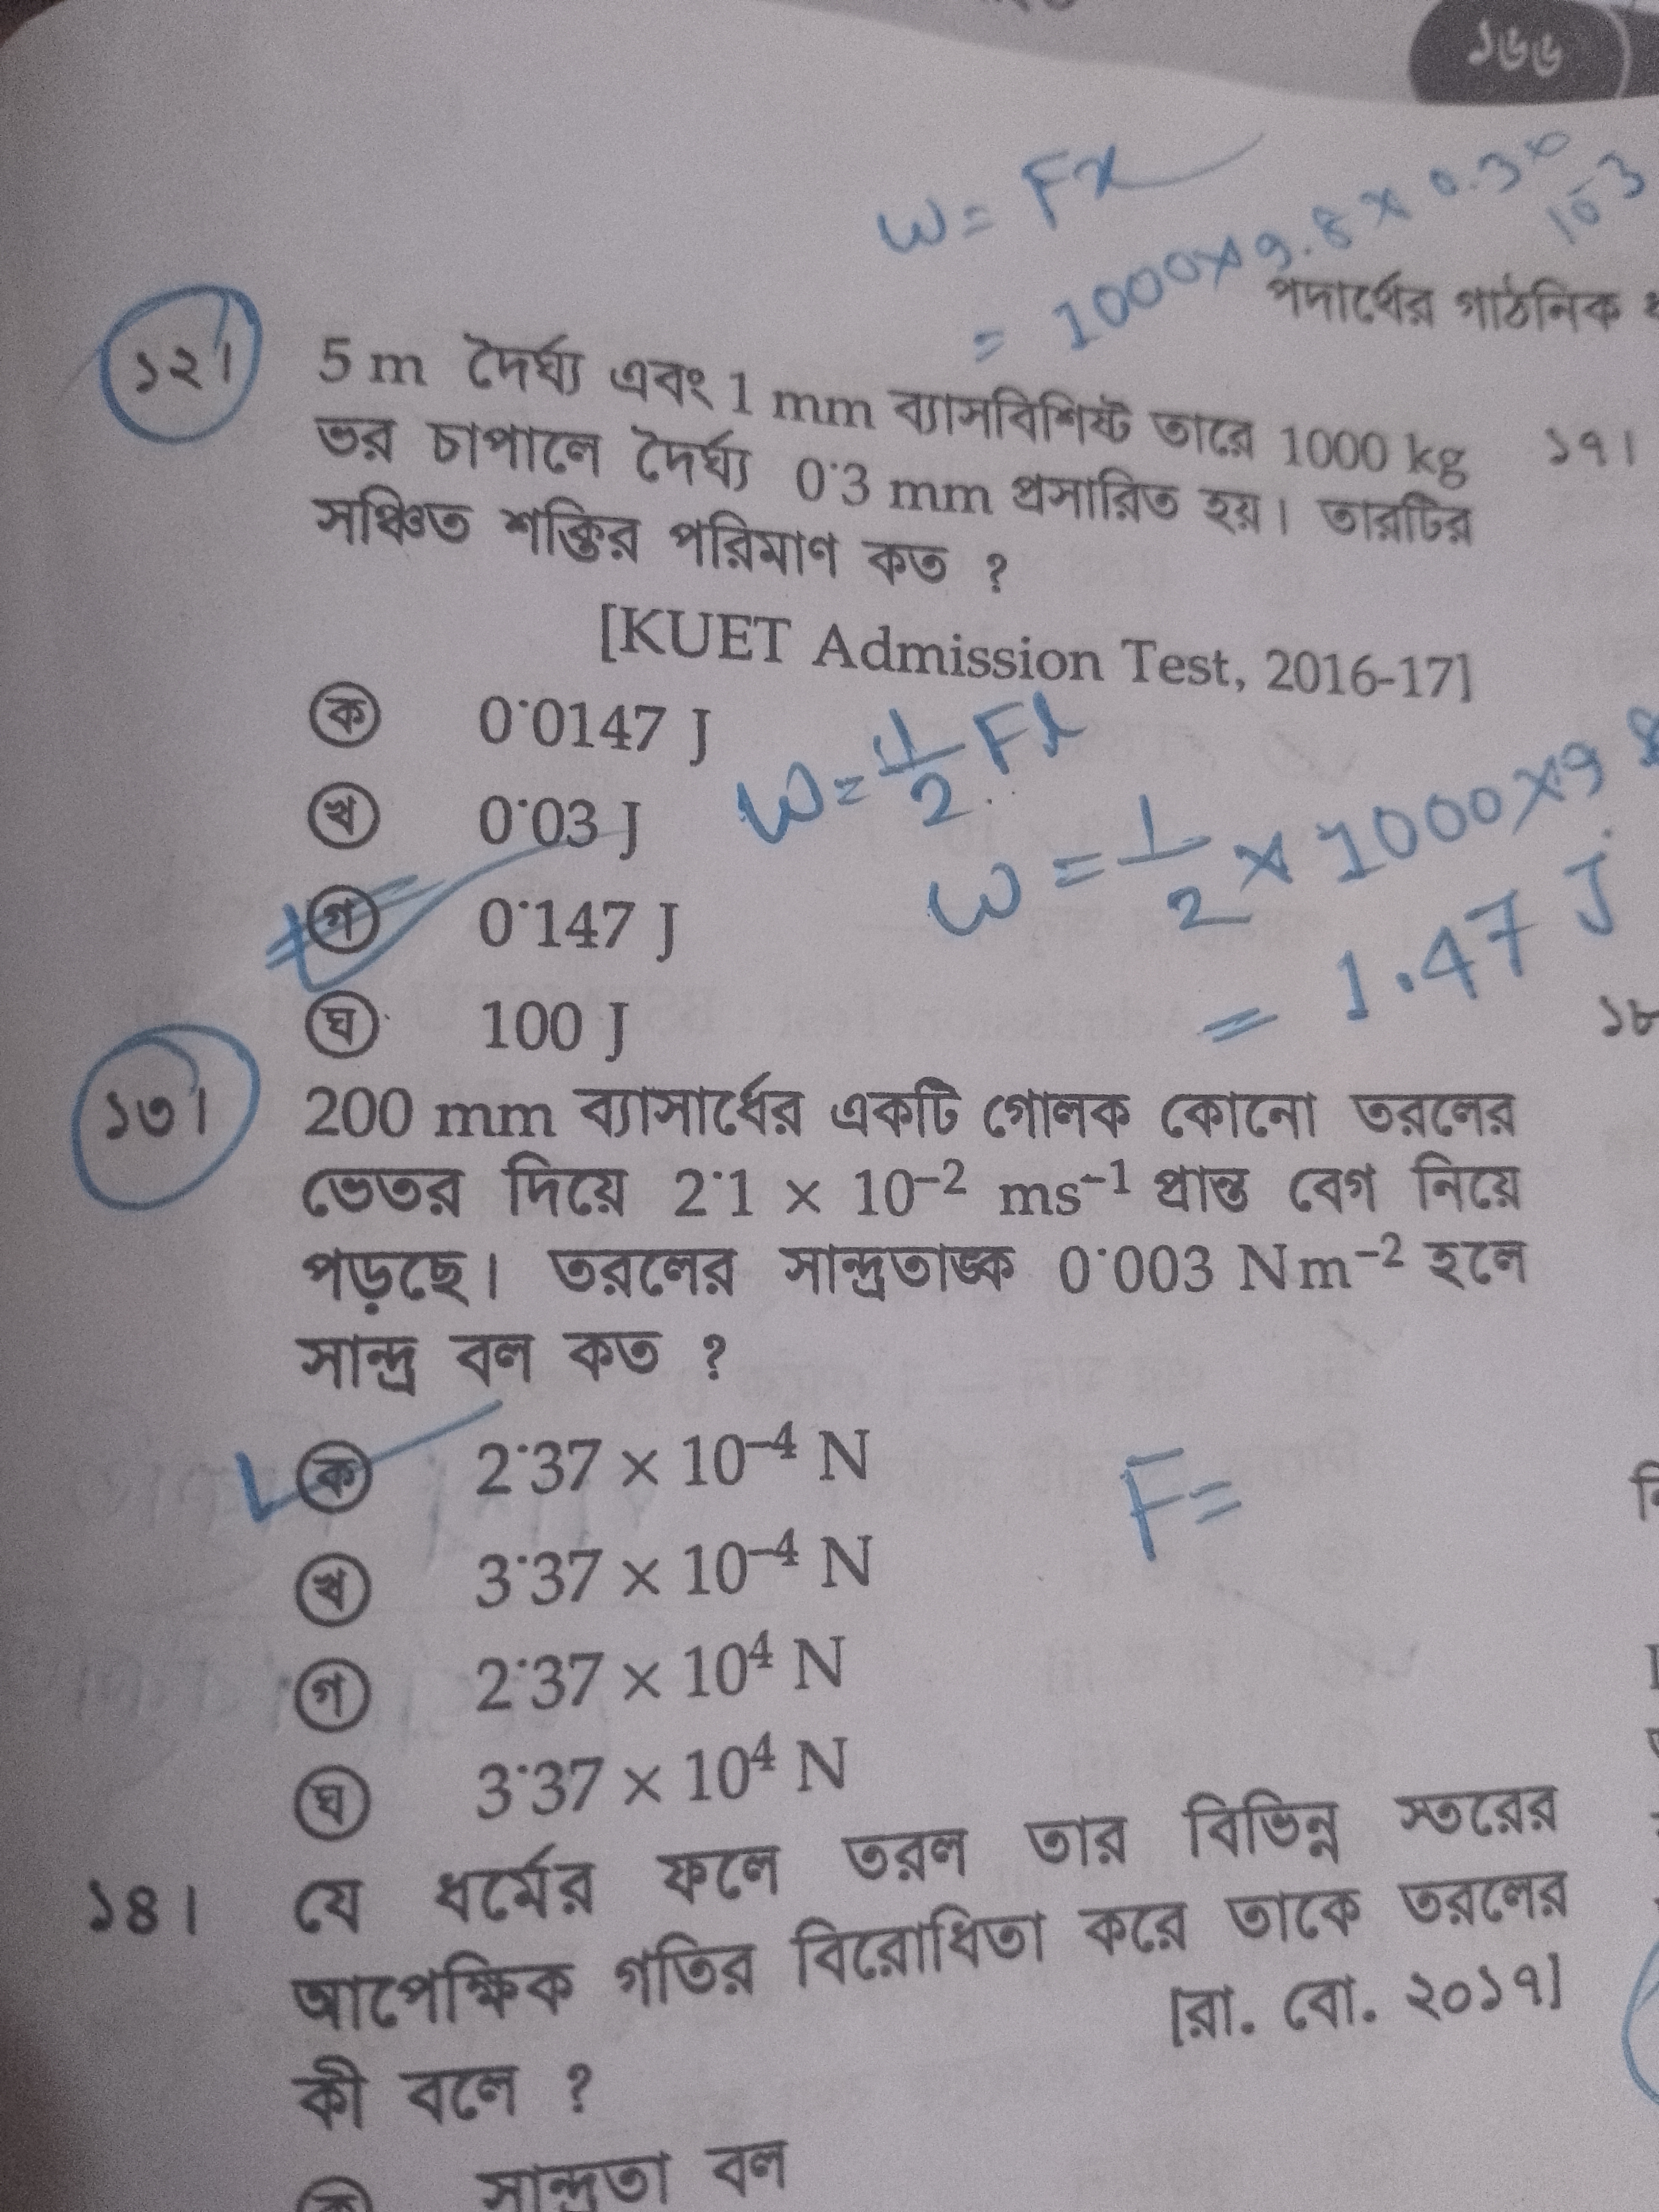 ১৬৬
W = Fx
= 1000×9.8×0.3×10-3
পদার্থের গাঠনিক
১২। 5 m দৈর্ঘ্য এবং 1 mm ব্যাসবিশিষ্ট তারে 1000 kg
ভর চাপালে দৈর্ঘ্য 0·3 mm প্রসারিত হয়। তারটির
সঞ্চিত শক্তির পরিমাণ কত ?
[KUET Admission Test, 2016-17]
ক 0·0147 J
খ 0·03 J
গ 0·147 J
ঘ 100 J
W = 1/2 Fl
W = 1/2 × 1000×9 8
= 1.47 J
১৩। 200 mm ব্যাসার্ধের একটি গোলক কোনো তরলের
ভেতর দিয়ে 2·1 × 10⁻² ms⁻¹ প্রান্ত বেগ নিয়ে
পড়ছে। তরলের সান্দ্রতাঙ্ক 0·003 Nm⁻² হলে
সান্দ্র বল কত ?
ক 2·37 × 10⁻⁴ N
খ 3·37 × 10⁻⁴ N
গ 2·37 × 10⁴ N
ঘ 3·37 × 10⁴ N
F=
১৪। যে ধর্মের ফলে তরল তার বিভিন্ন স্তরের
আপেক্ষিক গতির বিরোধিতা করে তাকে তরলের
কী বলে ? [রা. বো. ২০১৭]
ক সান্দ্রতা বল
১৭।
১৮